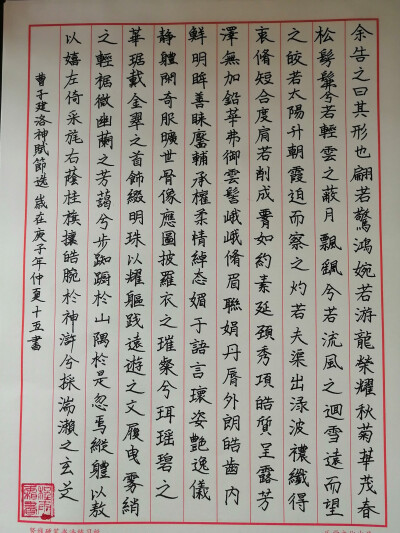 余告之曰其形也翩若驚鴻婉若游龍榮耀秋菊華茂春
松髣髴兮若輕雲之蔽月飄飖兮若流風之迴雪遠而望
之皎若太陽升朝霞迫而察之灼若夫渠出渌波襛纖得
衷脩短合度肩若削成腰如約素延頸秀項皓質呈露芳
澤無加鉛華弗御雲髻峨峨脩眉聯娟丹脣外朗皓齒内
鮮明眸善睞靨輔承權柔情綽態媚于語言瓌姿艷逸儀
静體閑奇服曠世骨像應圖披羅衣之璀粲兮珥瑶碧之
華琚戴金翠之首飾綴明珠以耀軀踐遠遊之文履曳霧綃
之輕裾微幽蘭之芳藹兮步踟躕於山隅於是忽焉縱體以敖
以嬉左倚采旄右蔭桂旗攘皓腕於神滸兮採湍瀨之玄芝
曹子建洛神賦節選 歲在庚子年仲夏十五書